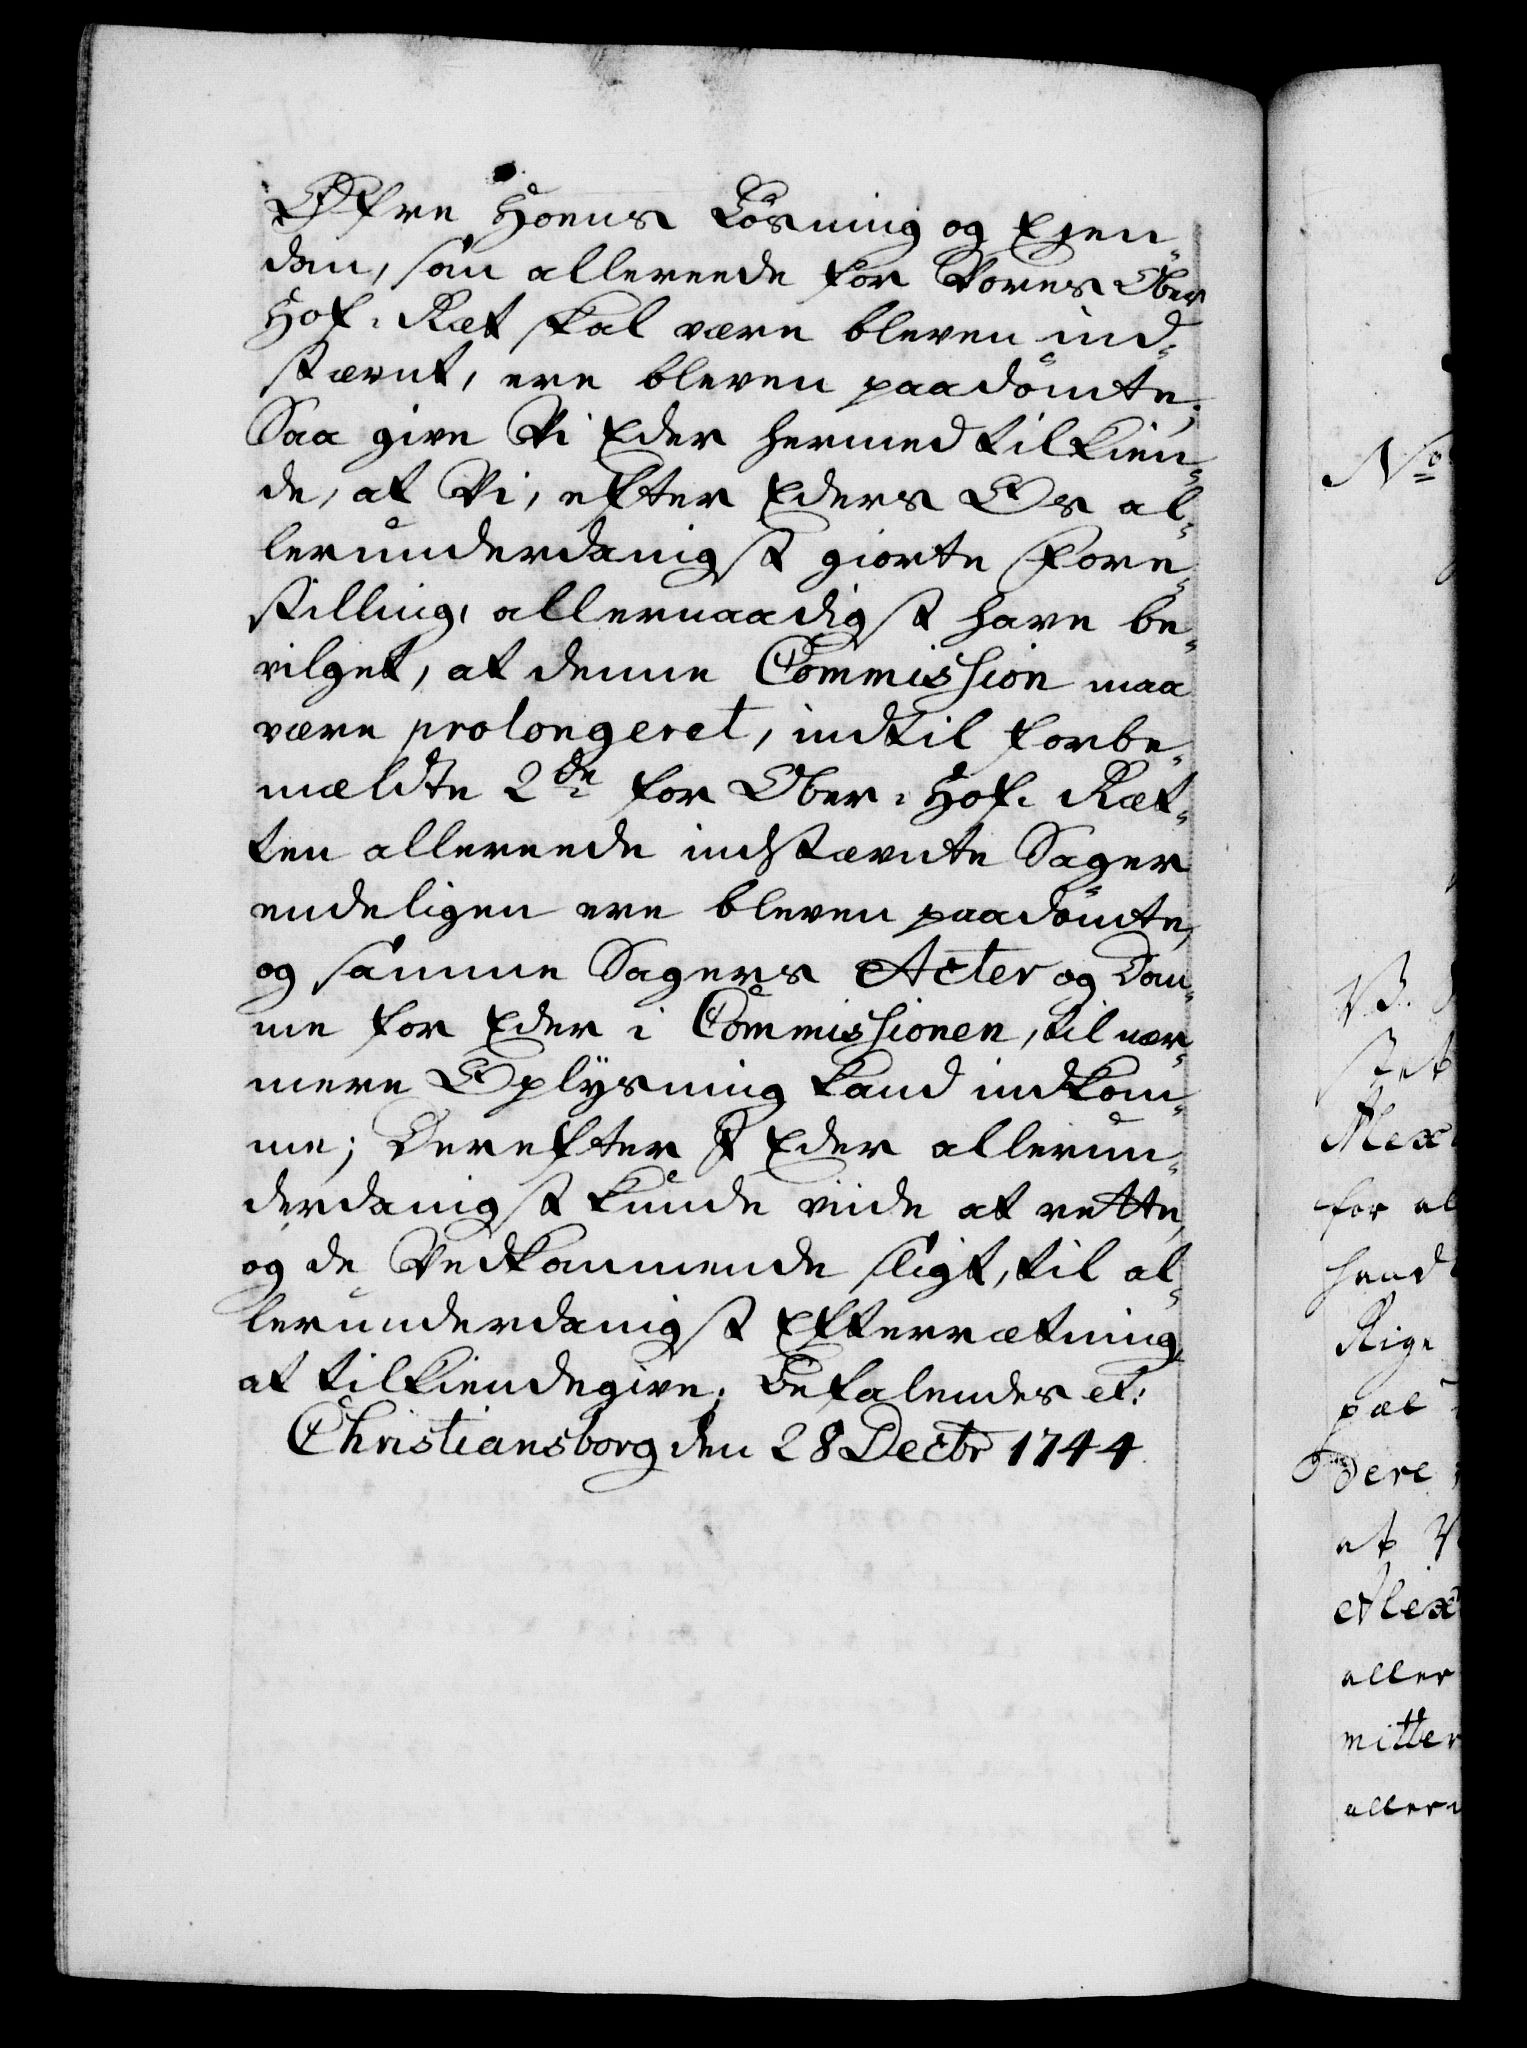 Øfre Hoens Løsning og Ejen-
dom, som allereede for Vores Ober
Hof-Ræt skal være bleven ind-
stævnt, ere bleven paadømte;
Saa give Vi Eder hermed tilkien-
de, at Vi, efter Eders Os al-
lerunderdanigst giorte Fore-
stilling, allernaadigst have be-
vilget, at denne Commission maa
være prolongeret, indtil forbe-
mældte 2de for Ober-Hof-Ræt-
ten allereede indstævnte Sager
endeligen ere bleven paadømte,
og samme Sagers Acter og Dom-
me for Eder i Commissionen, til nær-
mere Oplysning kand indkom-
me; Derefter I Eder allerun-
derdanigst kunde viide at rette,
og de Vedkommende sligt, til al-
lerunderdanigst Efterrætning,
at tilkiendegive. Befalendes et:
Christiansborg den 28 Dectbr 1744
No
for al
Rige
dere
at V
Alex
aller
mitter